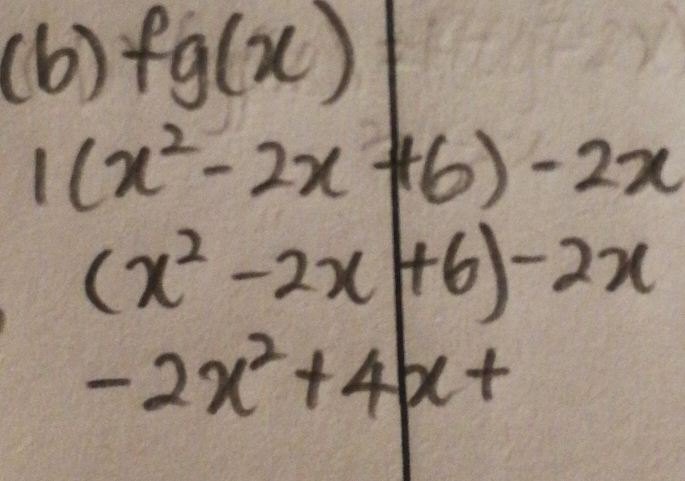 (b) fg(x)
1(x² - 2x + 6) - 2x
(x² - 2x + 6) - 2x
-2x² + 4x +